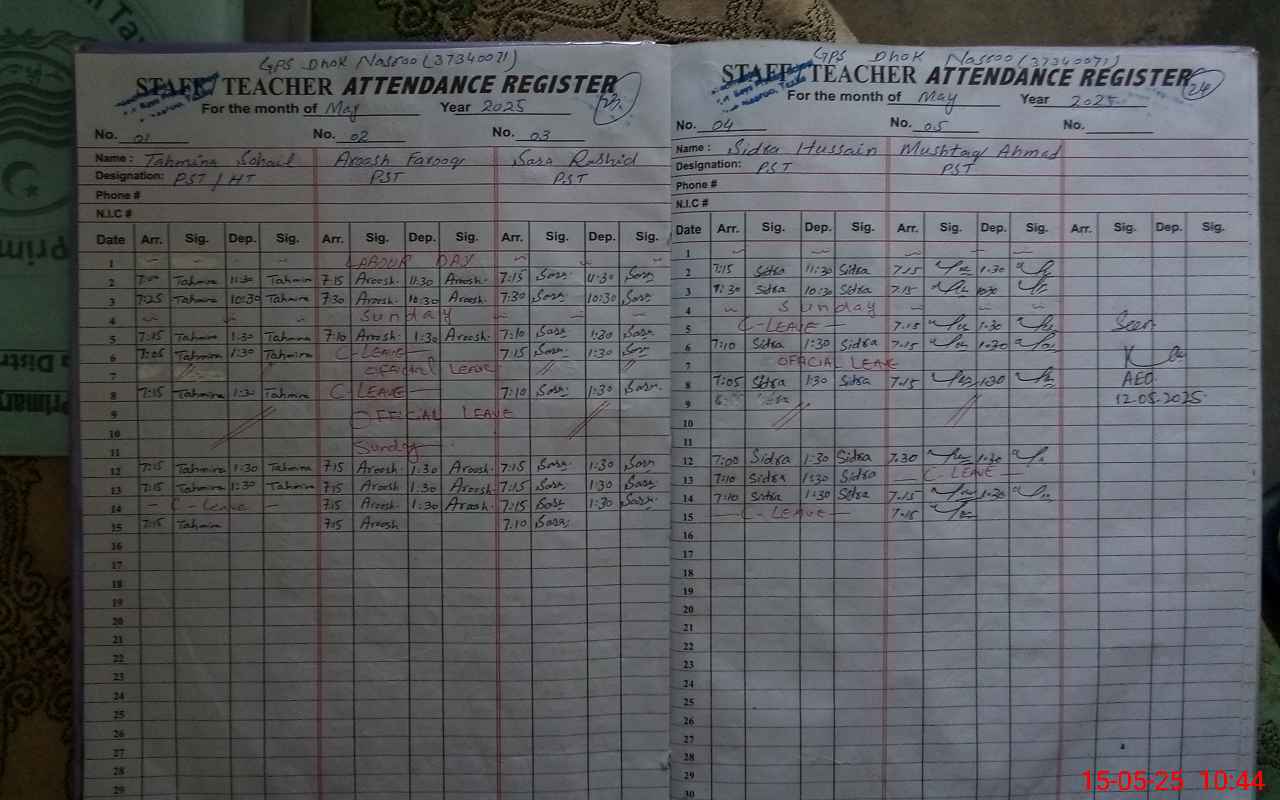 GPS Dhok Nasroo (37340071)
STAFF / TEACHER ATTENDANCE REGISTER
For the month of May Year 2025
23
No. 01 No. 02 No. 03
Name : Tahmina Sohail Aroosh Farooq Sara Rashid
Designation: PST / HT PST PST
Phone #
N.I.C #
Date Arr. Sig. Dep. Sig. Arr. Sig. Dep. Sig. Arr. Sig. Dep. Sig.
1 LABOUR DAY
2 Tahmina 11:30 Tahmina 7:15 Aroosh 11:30 Aroosh 7:15 Sara 11:30 Sara
3 7:25 Tahmina 10:30 Tahmina 7:30 Aroosh 10:30 Aroosh 7:30 Sara 10:30 Sara
4 Sunday
5 7:15 Tahmina 1:30 Tahmina 7:10 Aroosh 1:30 Aroosh 7:10 Sara 1:30 Sara
6 7:05 Tahmina 1:30 Tahmina C-LEAVE 7:15 Sara 1:30 Sara
7 OFFICIAL LEAVE
8 7:15 Tahmina 1:30 Tahmina C-LEAVE 7:10 Sara 1:30 Sara
9 OFFICIAL LEAVE
10
11 Sunday
12 7:15 Tahmina 1:30 Tahmina 7:15 Aroosh 1:30 Aroosh 7:15 Sara 1:30 Sara
13 7:15 Tahmina 1:30 Tahmina 7:15 Aroosh 1:30 Aroosh 7:15 Sara 1:30 Sara
14 - C-Leave - 7:15 Aroosh 1:30 Aroosh 7:15 Sara 1:30 Sara
15 7:15 Tahmina 7:15 Aroosh 7:10 Sara
16
17
18
19
20
21
22
23
24
25
26
27
28
29
GPS DHOK Nasroo (37340071)
STAFF / TEACHER ATTENDANCE REGISTER
For the month of May Year 2025
24
No. 04 No. 05 No.
Name : Sidra Hussain Mushtaq Ahmad
Designation: PST PST
Phone #
N.I.C #
Date Arr. Sig. Dep. Sig. Arr. Sig. Dep. Sig. Arr. Sig. Dep. Sig.
1
2 7:15 Sidra 11:30 Sidra 7:15 1:30
3 7:30 Sidra 10:30 Sidra 7:15 10:30
4 Sunday
5 C-LEAVE 7:15 1:30 Seen
6 7:10 Sidra 1:30 Sidra 7:15 1:30
7 OFFICIAL LEAVE
8 7:05 Sidra 1:30 Sidra 7:15 1:30 AEO
9 12-05-2025
10
11
12 7:00 Sidra 1:30 Sidra 7:30 1:30
13 7:10 Sidra 1:30 Sidra C-LEAVE
14 7:10 Sidra 1:30 Sidra 7:15 1:30
15 C-LEAVE 7:15
16
17
18
19
20
21
22
23
24
25
26
27
28
29
30
15-05-25 10:44